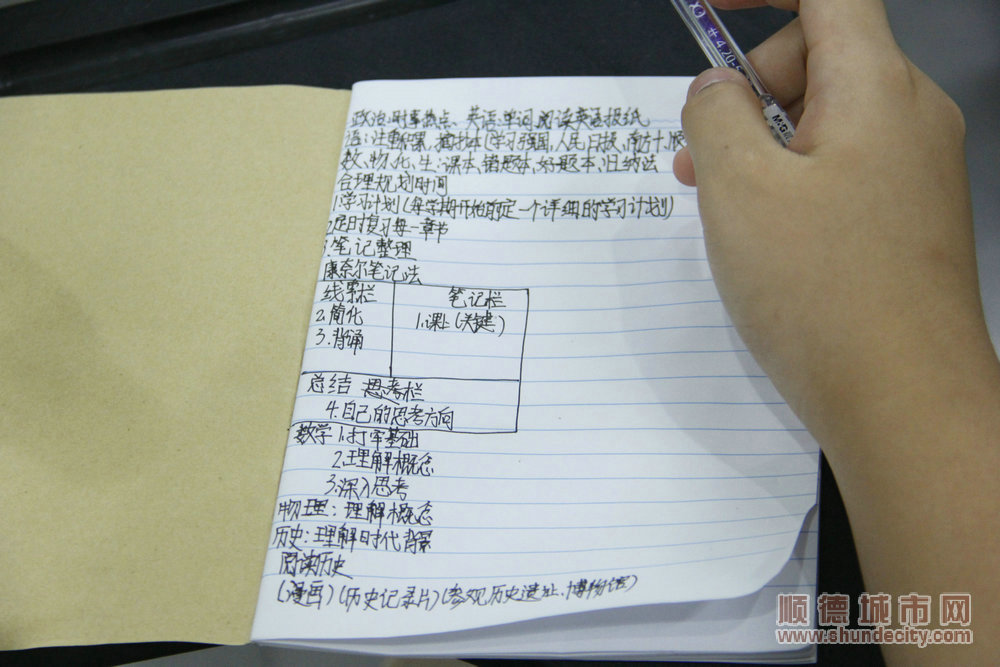 政治:时事热点、英语:单词,阅读英语报纸
语:注重积累,摘抄本(学习强国,人民日报,南方十,
数、物、化、生:课本、错题本、好题本、归纳法
合理规划时间
1.学习计划(每学期开始前定一个详细的学习计划)
2.定时复习每一章节
3.笔记整理
康奈尔笔记法
线索栏 笔记栏
2.简化 1.课上(关键)
3.背诵
总结 思考栏
4.自己的思考方向
数学 1.打牢基础
2.理解概念
3.深入思考
物理:理解概念
历史:理解时代背景
阅读历史
(漫画)(历史记录片)(参观历史遗址、博物馆)
M&G
顺德城市网
www.shundecity.com